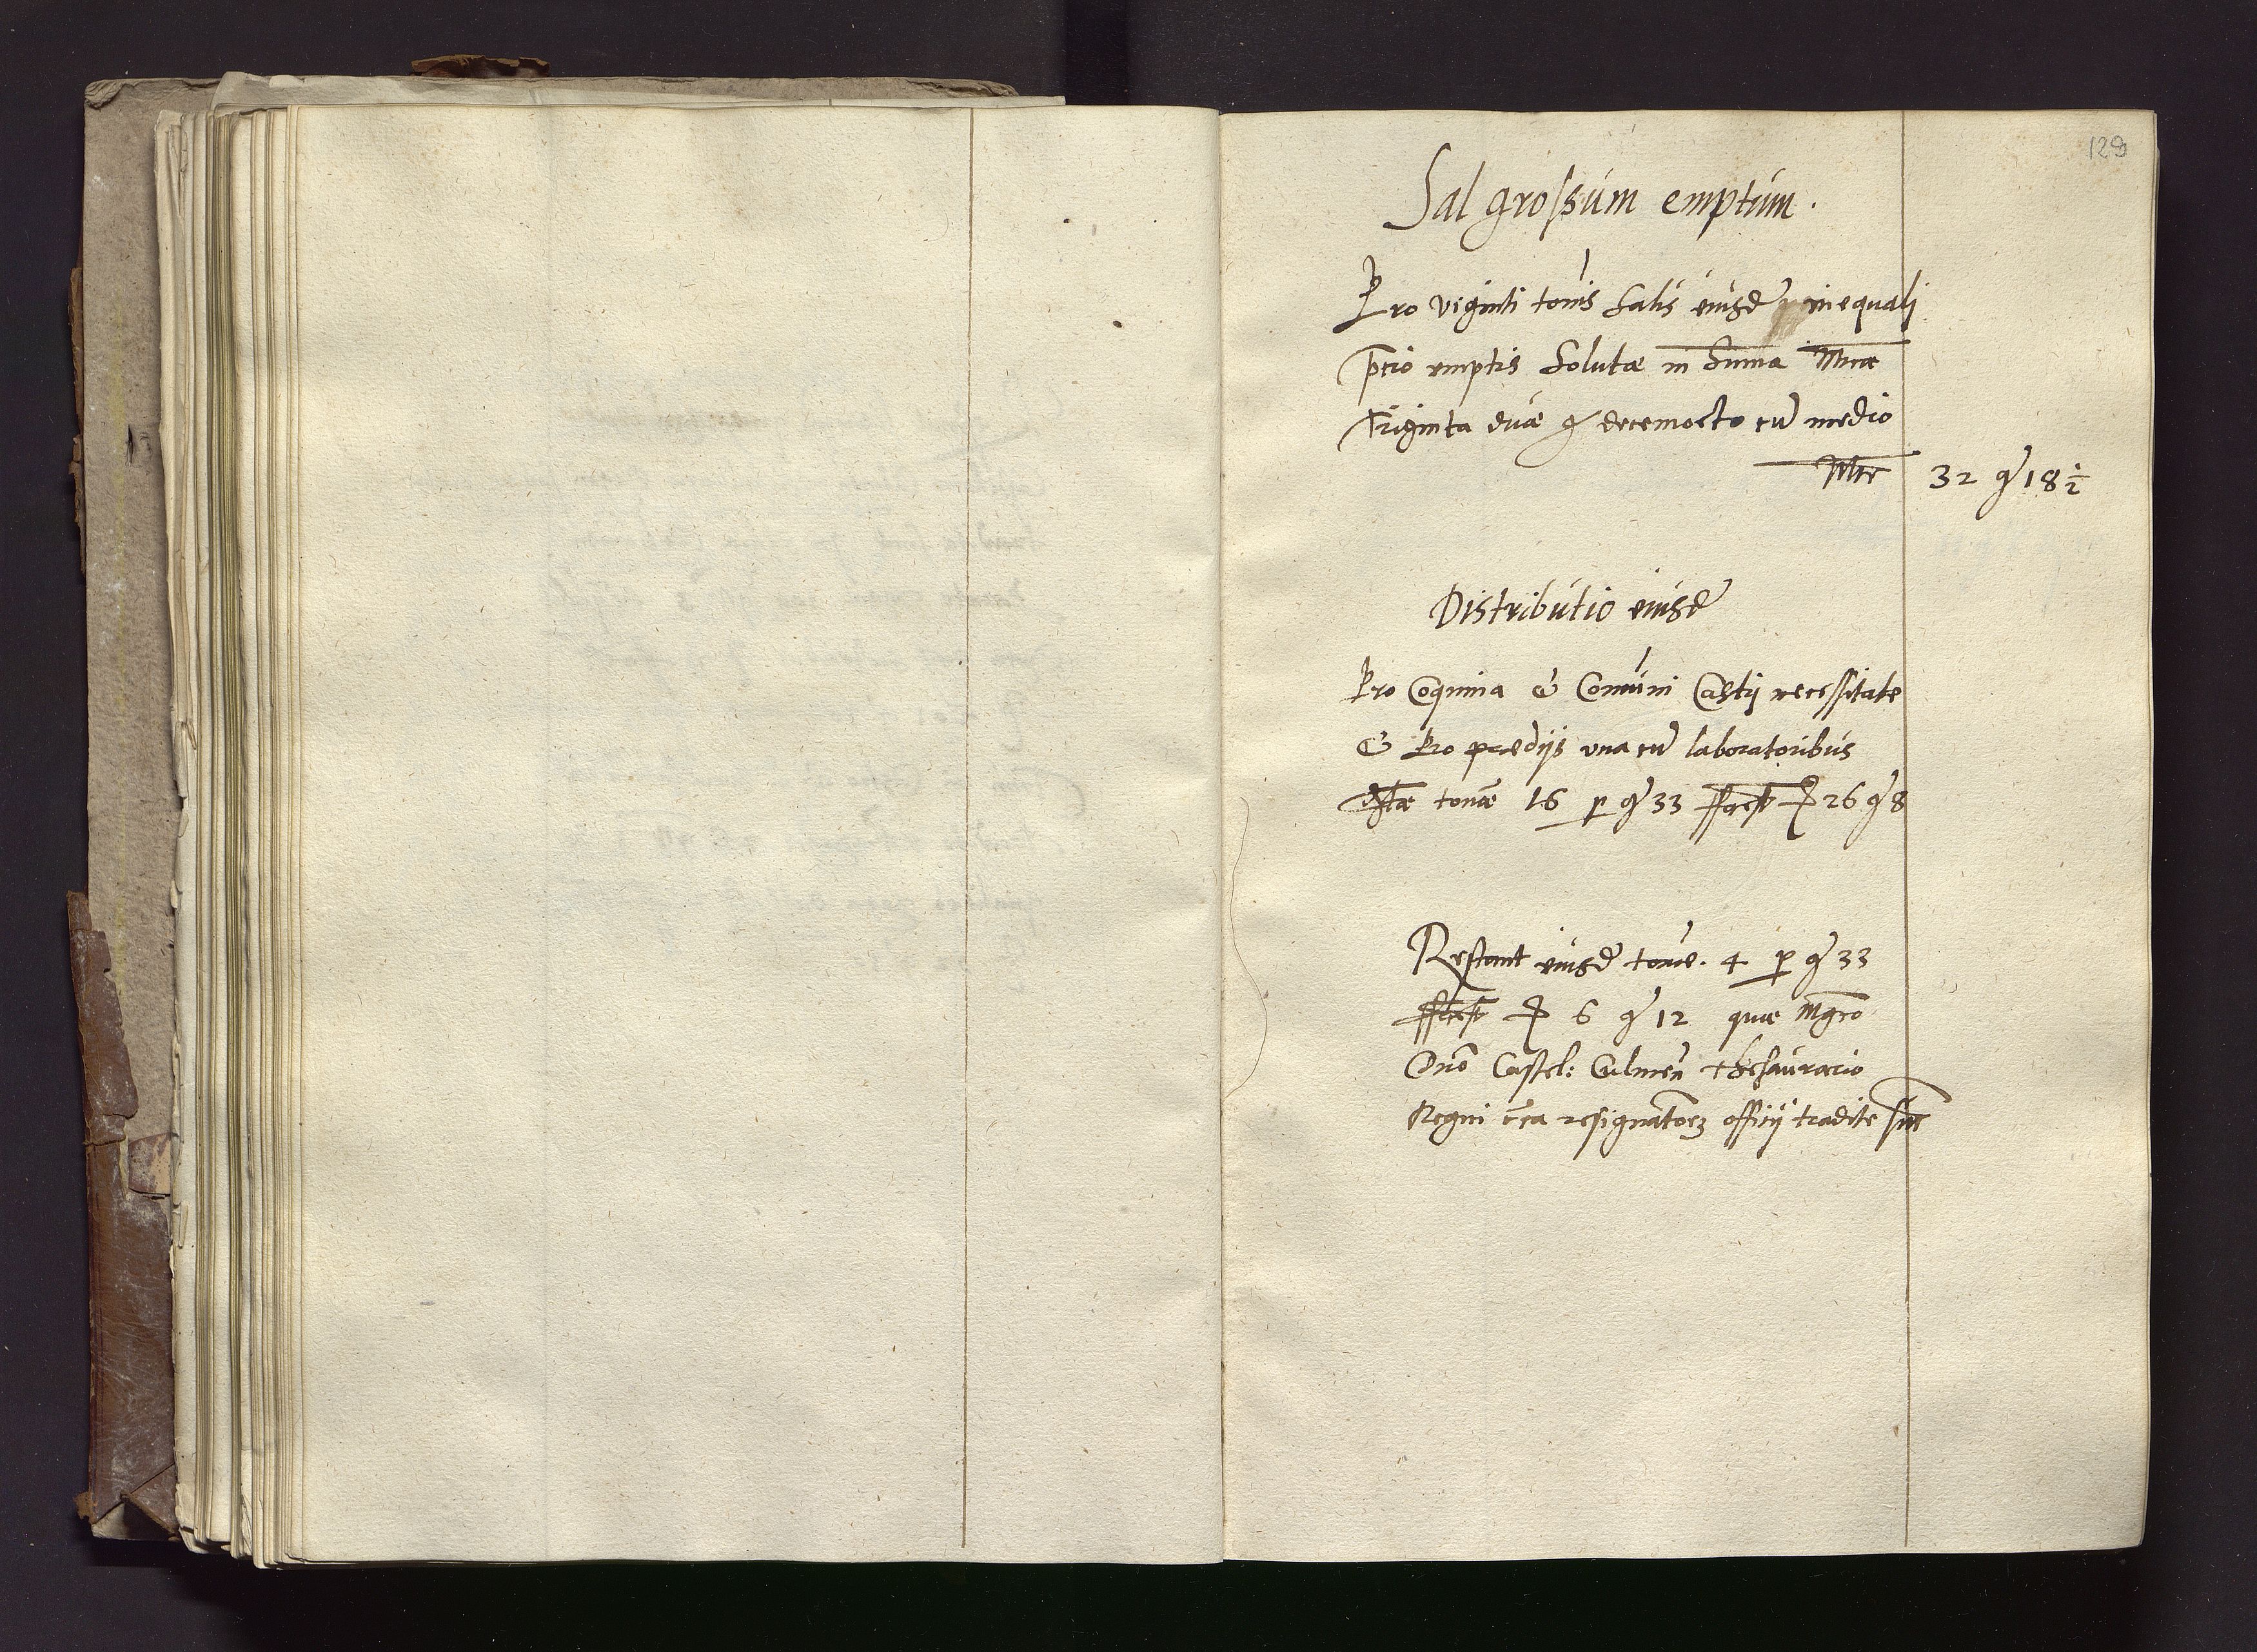 129
Sal grossum emptum.
Pro viginti tonis salis eiusd inequali
p̄cio emptis solutæ in sum̄a Mrcæ
Triginta duæ g̃ decemocto cū medio
Mrc 32 g̃ 18 ½
Distributio eiusd
Pro Coquina & Comuni Castrj necessitate
& Pro prædijs una cū laboratoribus
datæ tonæ 16 p g̃ 33 26 g̃ 8
Restant eiusd tonne. 4 p g̃ 33
6 g̃ 12 quæ Mg̃co
Dn̄o Castel: Culmeñ thesaurario
Regni c̄ca resignatōem officij tradite sūt